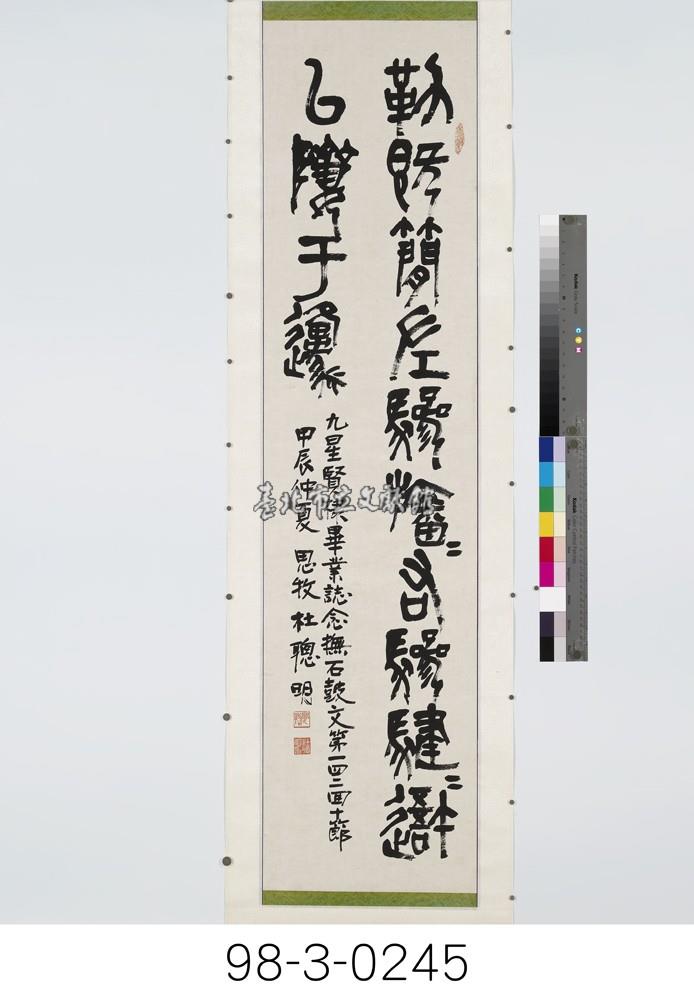 勒既簡左驂旛=右驂騝=䢩
㠯隮于邍
九星賢棣畢業誌念撫石鼓文第一四二回十節
甲辰仲夏 思牧 杜聰明
臺北市立文獻館
Kodak
98-3-0245